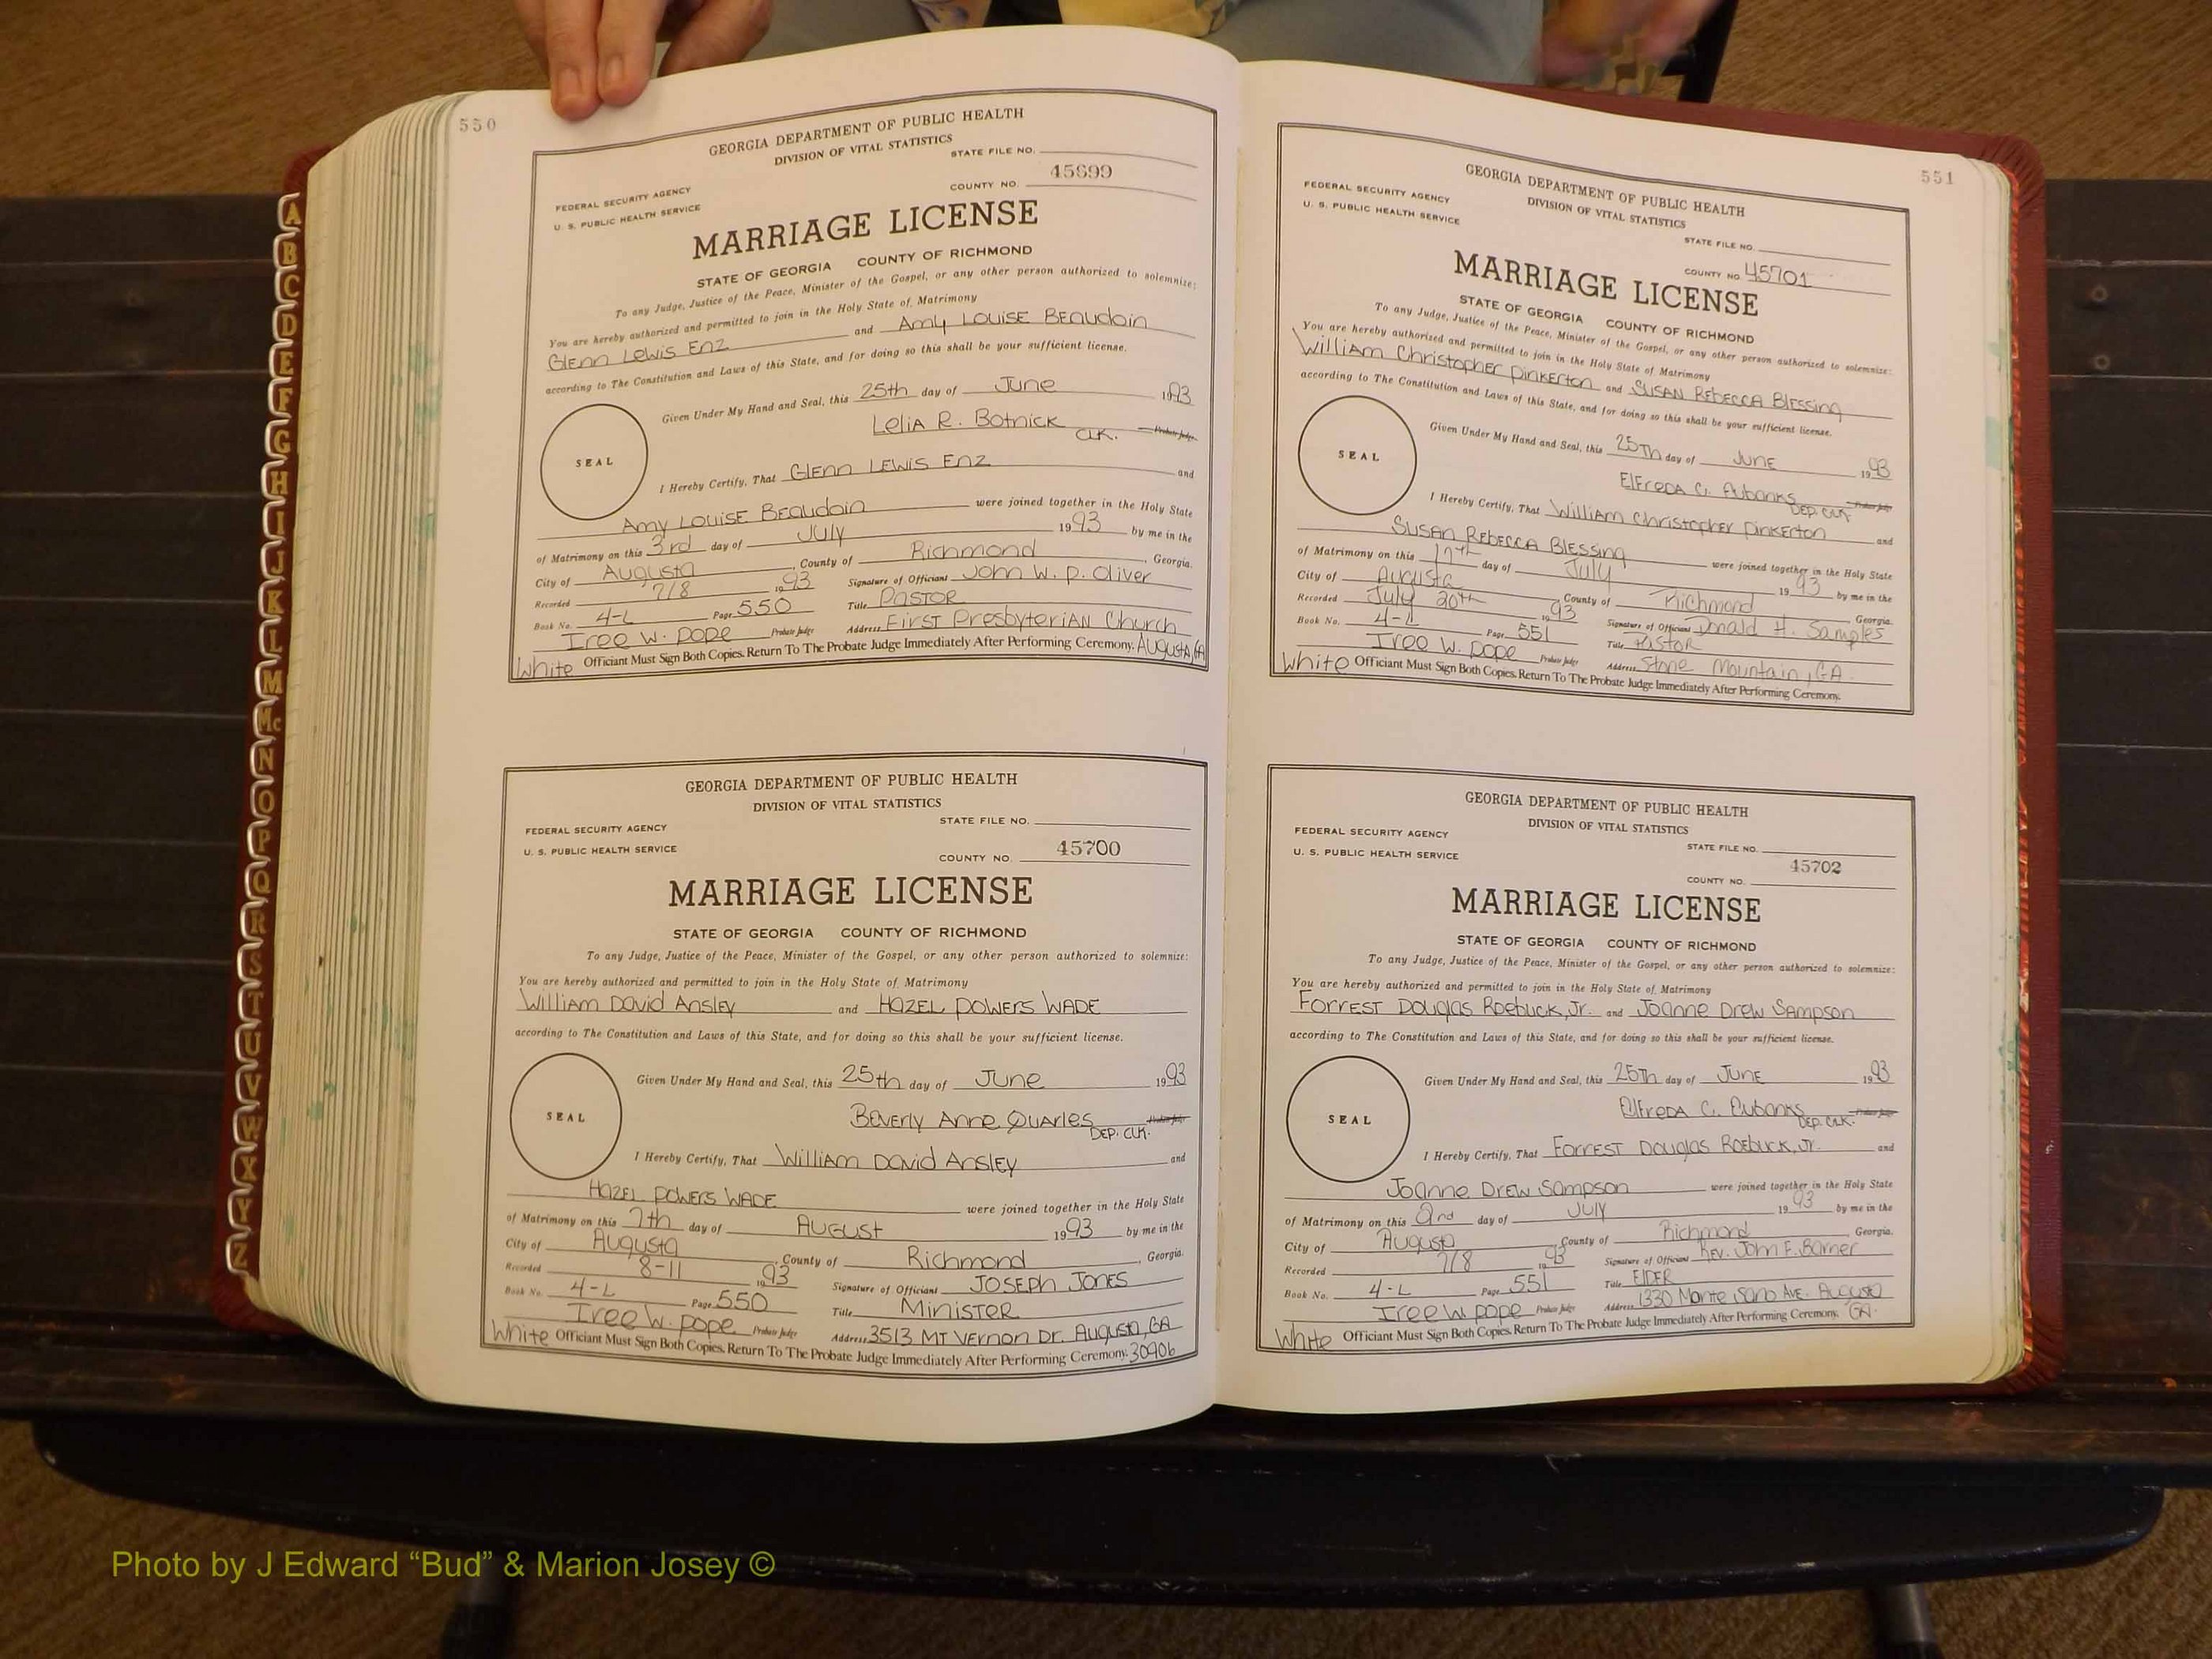 550
GEORGIA DEPARTMENT OF PUBLIC HEALTH
DIVISION OF VITAL STATISTICS
STATE FILE NO.
FEDERAL SECURITY AGENCY
U. S. PUBLIC HEALTH SERVICE
COUNTY NO. 45699
MARRIAGE LICENSE
STATE OF GEORGIA COUNTY OF RICHMOND
To any Judge, Justice of the Peace, Minister of the Gospel, or any other person authorized to solemnize:
You are hereby authorized and permitted to join in the Holy State of Matrimony
Glenn Lewis Enz and Amy Louise Beaudoin
according to The Constitution and Laws of this State, and for doing so this shall be your sufficient license.
Given Under My Hand and Seal, this 25th day of June 1993
Lelia R. Botnick CLK. Probate Judge
SEAL
I Hereby Certify, That Glenn Lewis Enz and
Amy Louise Beaudoin were joined together in the Holy State
of Matrimony on this 3rd day of July 1993 by me in the
City of Augusta, County of Richmond, Georgia.
Recorded 7/8 1993 Signature of Officiant John W. P. Oliver
Book No. 4-L Page 550 Title Pastor
Iree W. Pope Probate Judge Address First Presbyterian Church
White Officiant Must Sign Both Copies. Return To The Probate Judge Immediately After Performing Ceremony. Augusta, GA
GEORGIA DEPARTMENT OF PUBLIC HEALTH
DIVISION OF VITAL STATISTICS
STATE FILE NO.
FEDERAL SECURITY AGENCY
U. S. PUBLIC HEALTH SERVICE
COUNTY NO. 45700
MARRIAGE LICENSE
STATE OF GEORGIA COUNTY OF RICHMOND
To any Judge, Justice of the Peace, Minister of the Gospel, or any other person authorized to solemnize:
You are hereby authorized and permitted to join in the Holy State of Matrimony
William David Ansley and Hazel Powers Wade
according to The Constitution and Laws of this State, and for doing so this shall be your sufficient license.
Given Under My Hand and Seal, this 25th day of June 1993
Beverly Anne Quarles DEP. CLK. Probate Judge
SEAL
I Hereby Certify, That William David Ansley and
Hazel Powers Wade were joined together in the Holy State
of Matrimony on this 7th day of August 1993 by me in the
City of Augusta, County of Richmond, Georgia.
Recorded 8-11 1993 Signature of Officiant Joseph Jones
Book No. 4-L Page 550 Title Minister
Iree W. Pope Probate Judge Address 3513 Mt Vernon Dr. Augusta, GA
White Officiant Must Sign Both Copies. Return To The Probate Judge Immediately After Performing Ceremony. 30906
551
GEORGIA DEPARTMENT OF PUBLIC HEALTH
DIVISION OF VITAL STATISTICS
FEDERAL SECURITY AGENCY
U. S. PUBLIC HEALTH SERVICE
STATE FILE NO.
COUNTY NO. 45701
MARRIAGE LICENSE
STATE OF GEORGIA COUNTY OF RICHMOND
To any Judge, Justice of the Peace, Minister of the Gospel, or any other person authorized to solemnize:
You are hereby authorized and permitted to join in the Holy State of Matrimony
William Christopher Pinkerton and Susan Rebecca Blessing
according to The Constitution and Laws of this State, and for doing so this shall be your sufficient license.
Given Under My Hand and Seal, this 25th day of June 1993
Elfreda C. Eubanks DEP. CLK. Probate Judge
SEAL
I Hereby Certify, That William Christopher Pinkerton and
Susan Rebecca Blessing were joined together in the Holy State
of Matrimony on this 17th day of July 1993 by me in the
City of Augusta County of Richmond Georgia.
Recorded July 20th 1993 Signature of Officiant Donald H. Samples
Book No. 4-L Page 551 Title Pastor
Iree W. Pope Probate Judge Address Stone Mountain, GA.
White Officiant Must Sign Both Copies. Return To The Probate Judge Immediately After Performing Ceremony.
GEORGIA DEPARTMENT OF PUBLIC HEALTH
DIVISION OF VITAL STATISTICS
FEDERAL SECURITY AGENCY
U. S. PUBLIC HEALTH SERVICE
STATE FILE NO.
COUNTY NO. 45702
MARRIAGE LICENSE
STATE OF GEORGIA COUNTY OF RICHMOND
To any Judge, Justice of the Peace, Minister of the Gospel, or any other person authorized to solemnize:
You are hereby authorized and permitted to join in the Holy State of Matrimony
Forrest Douglas Roebuck, Jr. and Joanne Drew Sampson
according to The Constitution and Laws of this State, and for doing so this shall be your sufficient license.
Given Under My Hand and Seal, this 25th day of June 1993
Elfreda C. Eubanks DEP. CLK. Probate Judge
SEAL
I Hereby Certify, That Forrest Douglas Roebuck, Jr. and
Joanne Drew Sampson were joined together in the Holy State
of Matrimony on this 2nd day of July 1993 by me in the
City of Augusta County of Richmond Georgia.
Recorded 7/8 1993 Signature of Officiant Rev. John F. Barner
Book No. 4-L Page 551 Title Elder
Iree W. Pope Probate Judge Address 1330 Monte Sano Ave. Augusta
White Officiant Must Sign Both Copies. Return To The Probate Judge Immediately After Performing Ceremony. GA.
A
B
C
D
E
F
G
H
I
J
K
L
M
Mc
N
O
P
Q
R
S
T
U
V
W
X
Y
Z
Photo by J Edward “Bud” & Marion Josey ©